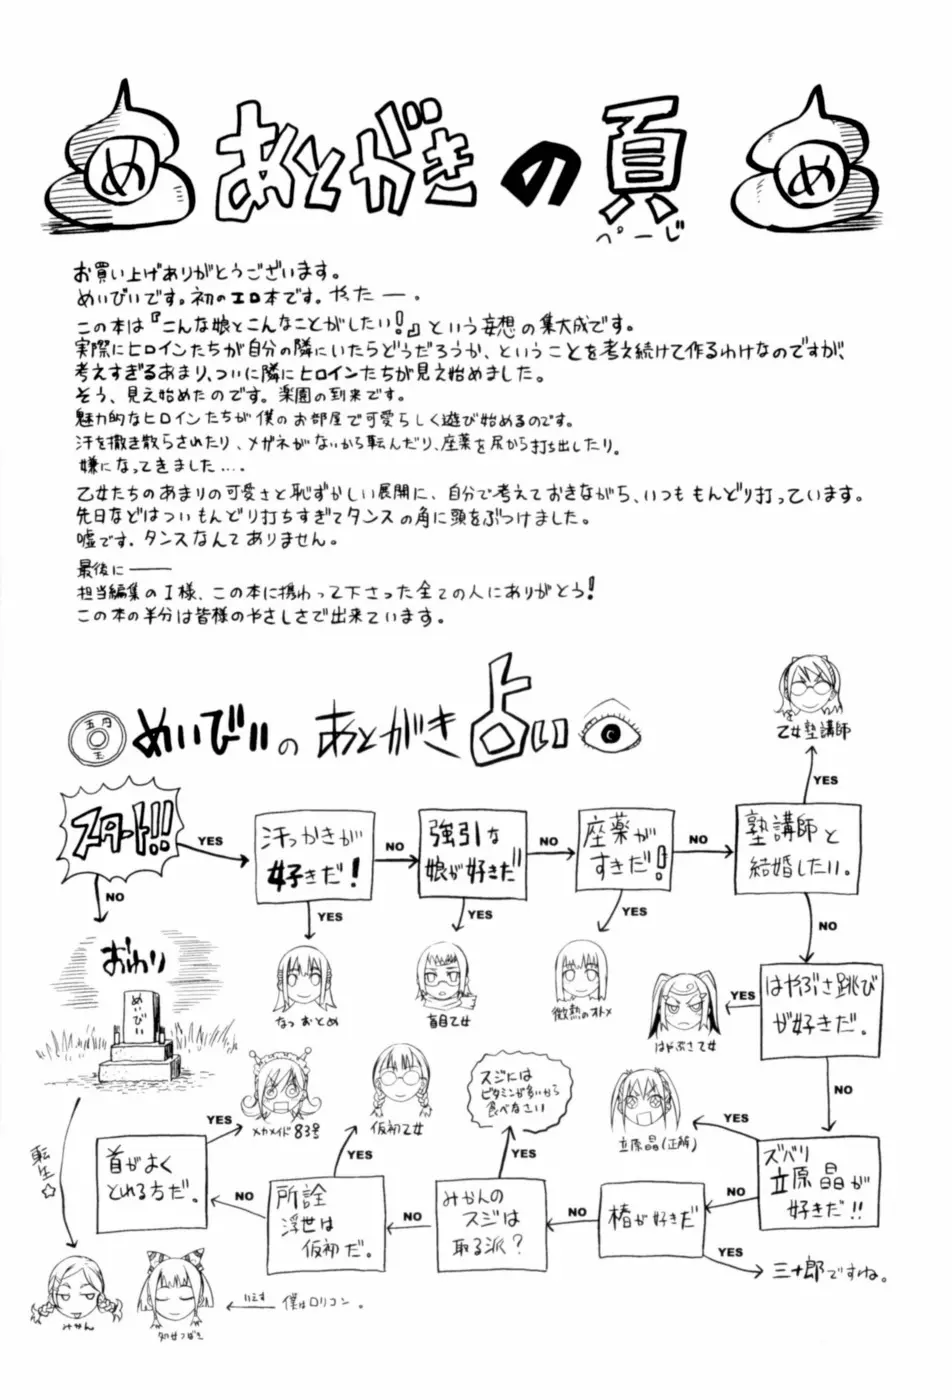 め
あとがきの頁
め
ぺーじ
お買い上げありがとうございます。
めいびいです。初のエロ本です。やったー。
この本は『こんな娘とこんなことがしたい!』という妄想の集大成です。
実際にヒロインたちが自分の隣にいたらどうだろうか、ということを考え続けて作るわけなのですが、
考えすぎるあまり、ついに隣にヒロインたちが見え始めました。
そう、見え始めたのです。楽園の到来です。
魅力的なヒロインたちが僕のお部屋で可愛らしく遊び始めるのです。
汗を撒き散らされたり、メガネがないから転んだり、座薬を尻から打ち出したり。
嫌になってきました....
乙女たちのあまりの可愛さと恥ずかしい展開に、自分で考えておきながら、いつももんどり打っています。
先日などはついもんどり打ちすぎてタンスの角に頭をぶつけました。
嘘です。タンスなんてありません。
最後に――
担当編集のI様、この本に携わって下さった全ての人にありがとう!
この本の半分は皆様のやさしさで出来ています。
五円
玉
めいびいのあとがき占い
スタート!!
YES
NO
汗っかきが
好きだ!
NO
YES
なつおとめ
強引な
娘が好きだ
NO
YES
盲目乙女
座薬が
すきだ!
NO
YES
微熱のオトメ
塾講師と
結婚したい。
YES
乙女塾講師
NO
はやぶさ跳び
が好きだ。
YES
はやぶさ乙女
NO
ズバリ
立原晶が
好きだ!!
YES
立原晶(正解)
NO
椿が好きだ
YES
三十郎ですね。
NO
みかんの
スジは
取る派?
YES
スジには
ビタミンが多いから
食べなさい
NO
所詮
浮世は
仮初だ。
YES
仮初乙女
NO
首がよく
とれる方だ。
YES
メカメイド83号
おわり
めいびい
転生☆
みかん
処女つばき
いえす
僕はロリコン。